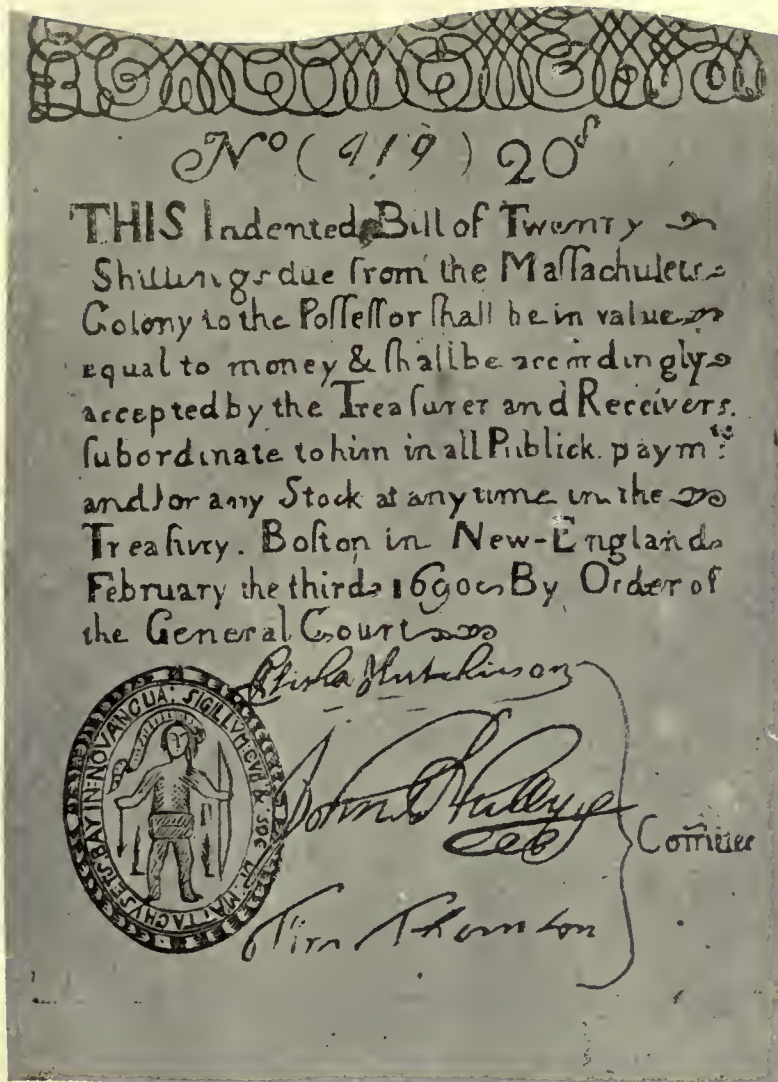 No (919) 20s
THIS Indented Bill of Twenty
Shillings due from the Maſſachuſets
Colony to the Poſſeſſor ſhall be in value
equal to money & ſhall be accordingly
accepted by the Treaſurer and Receivers
ſubordinate to him in all Publick paymts:
and for any Stock at any time in the
Treaſury. Boſton in New-England
February the third 1690 By Order of
the General Court
Elisha Hutchinson
John
Tim Thornton
Comittee
SIGILLVM GVB & SOC DE MATTACHVSETS BAY IN NOVANGLIA: